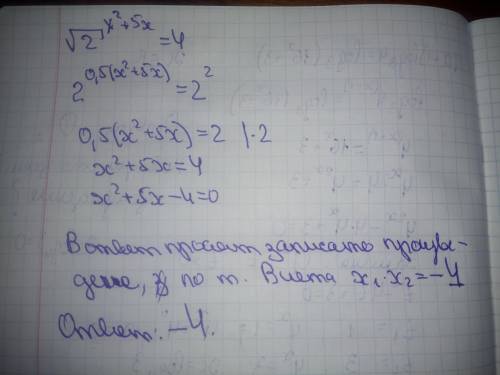 √2^(x²+5x) = 4
2^(0,5(x²+5x)) = 2²
0,5(x²+5x) = 2 |·2
x²+5x=4
x²+5x-4=0
В ответ просят записать произве-
дение, по т. Виета x₁·x₂=-4
Ответ: -4.